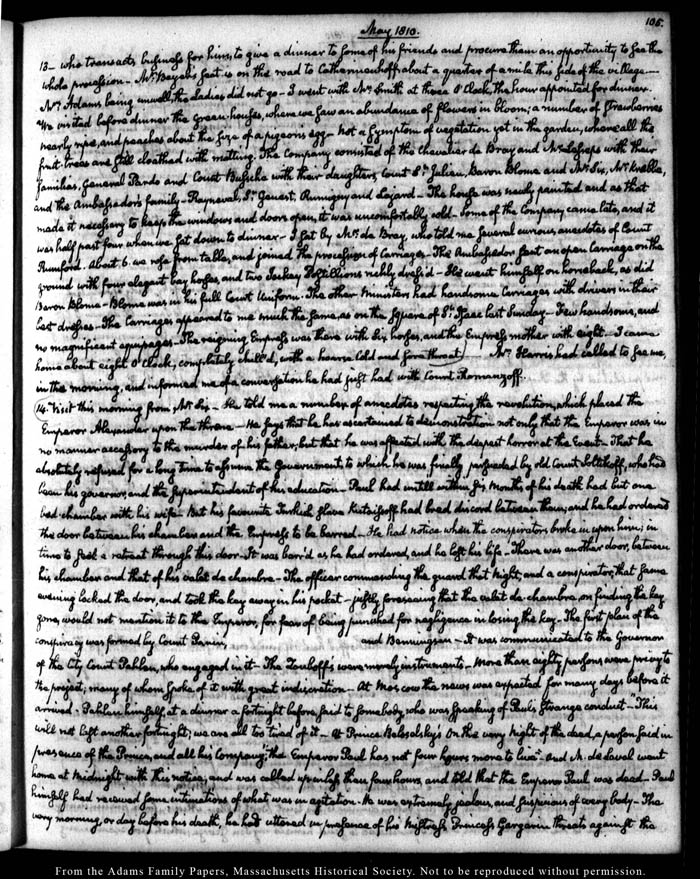 May 1810.
105.
13 - who transacts business for him, to give a dinner to some of his friends and procure them an opportunity to see the
whole procession - Mr Bayel's seat is on the road to Catherinenhoff about a quarter of a mile this side of the village -
Mrs Adams being unwell the ladies did not go - I went with Mr Smith at three O'Clock, the hour appointed for dinner.
We visited before dinner the green-houses, where we saw an abundance of flowers in bloom; a number of Strawberries
nearly ripe, and peaches about the size of a pigeons egg - Not a symptom of vegetation yet in the garden, where all the
fruit-trees are still cloathed with matting. The Company consisted of the Chevalier de Bray and Mr Lesseps with their
families, General Pardo and Count Bussche with their daughters, Count St Julien, Baron Blome and Mr Six, Mr Krabbe,
and the Ambassador's family - Rayneval, St Genest, Rumigny and Lajard - The house was newly painted and as that
made it necessary to keep the windows and doors open, it was uncomfortably cold - Some of the Company came late, and it
was half past four when we sat down to dinner - I sat by Mrs de Bray, who told me several curious anecdotes of Count
Rumford. About 6. we rose from table, and joined the procession of Carriages - The Ambassador sent an open carriage on the
round with four elegant bay horses, and two Jockey Postillions richly dress'd - He went himself on horseback, as did
Baron Blome - Blome was in his full Court Uniform. The other Ministers had handsome Carriages with drivers in their
best dresses - The Carriages appeared to me much the same, as on the Square of St Isaac last Sunday - Few handsome, and
no magnificent equipages - The reigning Empress was there with six horses, and the Empress mother with eight - I came
home about eight O'Clock, completely chill'd, with a hoarse Cold and sore throat - Mr Harris had called to see me,
in the morning, and informed me of a conversation he had just had with Count Romanzoff.
14. Visit this morning from Mr Six - He told me a number of anecdotes respecting the revolution, which placed the
Emperor Alexander upon the throne - He says that he has ascertained to demonstration not only that the Emperor was in
no manner accessory to the murder of his father, but that he was affected with the deepest horror at the Event - That he
absolutely refused for a long time to assume the Government, to which he was finally persuaded by old Count Soltikoff, who had
been his governor, and the superintendent of his education - Paul had untill within six Months of his death had but one
bed chamber with his wife - But his favourite Turkish slave Kutaissoff had bred discord between them; and he had ordered
the door between his chamber and the Empress to be barred - He had notice when the conspirators broke in upon him; in
time to seek a retreat through this door - It was barr'd as he had ordered, and he lost his life - There was another door, between
his chamber and that of his valet de chambre - The officer commanding the guard that Night, and a conspirator, that same
evening locked the door, and took the key away in his pocket - justly foreseeing that the valet de chambre, on finding the key
gone, would not mention it to the Emperor, for fear of being punished for negligence in losing the key - The first plan of the
conspiracy was formed by Count Panin, and Benningsen - It was communicated to the Governor
of the City Count Pahlen, who engaged in it - The Zouboffs were merely instruments - More than eighty persons were privy to
the project; many of whom spoke of it with great indiscretion - At Moscow the news was expected for many days before it
arrived - Pahlen himself, at a dinner a fortnight before, said to somebody who was speaking of Paul's strange conduct - "This
will not last another fortnight; we are all too tired of it - At Prince Beloselsky's On the very Night of the deed, a person said in
presence of the Prince, and all his Company, "the Emperor Paul has not four hours more to live" - and M. de Laval went
home at Midnight with this notice, and was called up in less than four hours, and told that the Emperor Paul was dead - Paul
himself had received some intimations of what was in agitation. He was extremely jealous, and suspicious of every body - The
very morning, or day before his death, he had uttered in presence of his Mistress, Princess Gargarin threats against the
From the Adams Family Papers, Massachusetts Historical Society. Not to be reproduced without permission.